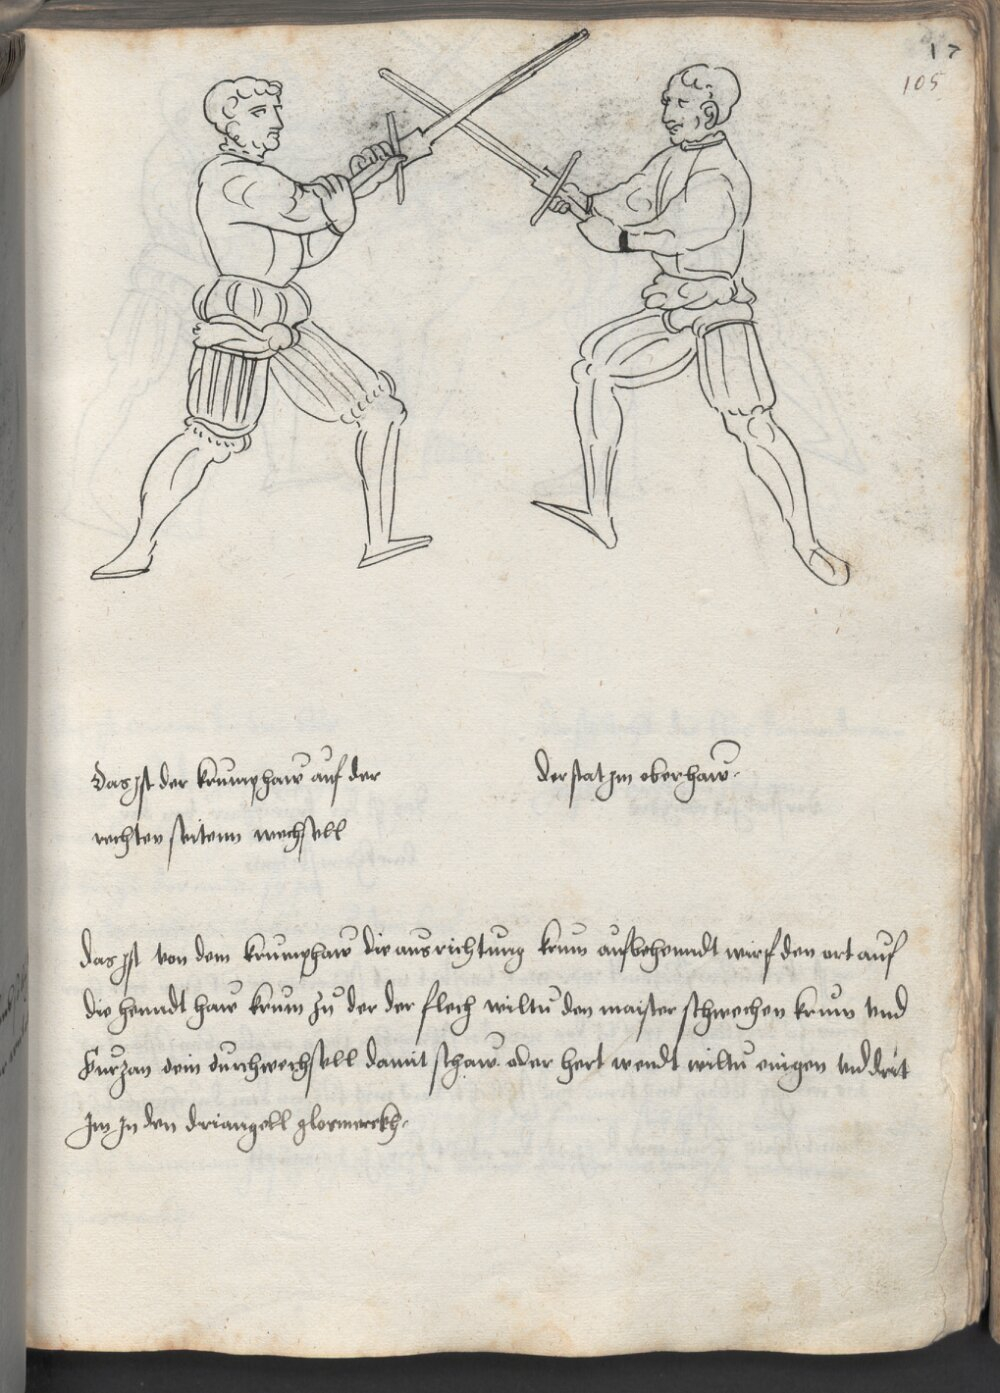 17
105
Das ist der krumphaw auf der
rechten seitenn wechsell
der stat im oberhaw.
das ist von dem krumphaw die ausrichtung krum aufbehenndt wirf den ort auf
die henndt haw krum zu der der flech wiltu den maister schwechen krum und
kurz an dein durchwechsell damit schaw oder hert wendt wiltu einigen und drit
im in den driangell glosmerckh.